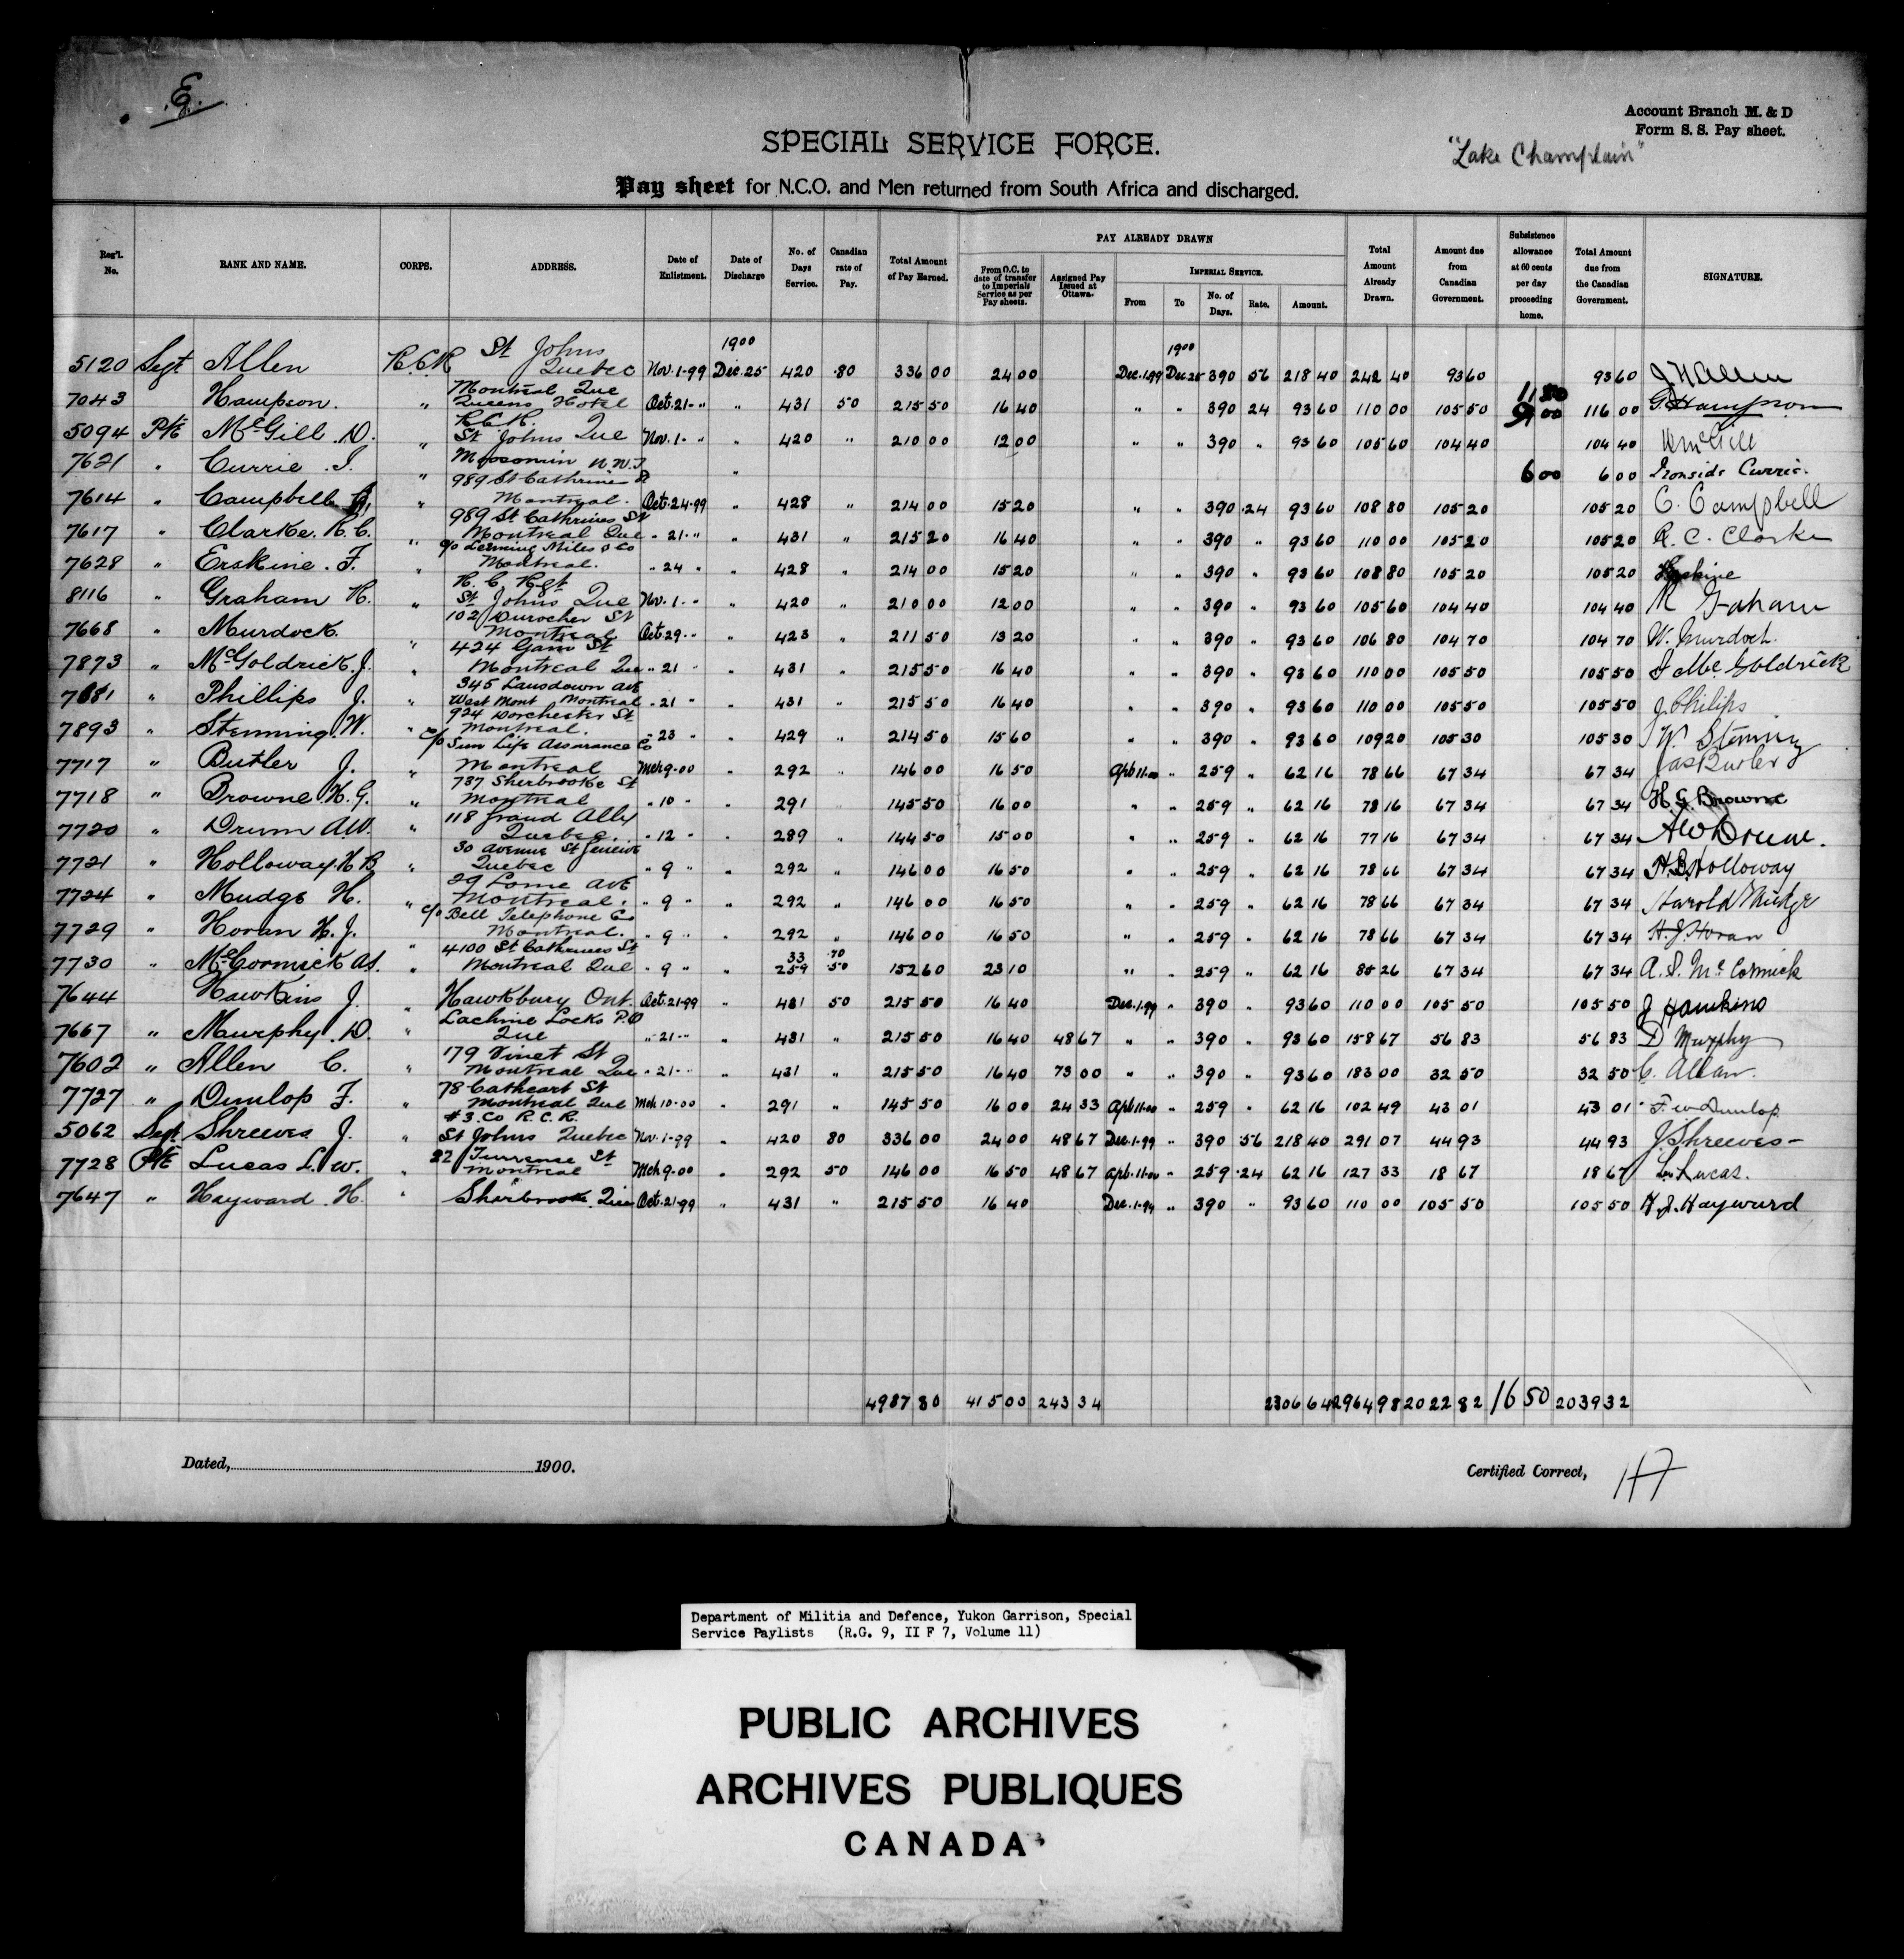 E.
Account Branch M. & D
Form S. S. Pay sheet.
"Lake Champlain"
SPECIAL SERVICE FORCE.
Pay sheet for N.C.O. and Men returned from South Africa and discharged.
Reg'l. No. RANK AND NAME. CORPS. ADDRESS. Date of Enlistment. Date of Discharge No. of Days Service. Canadian rate of Pay. Total Amount of Pay Earned. PAY ALREADY DRAWN From O.C. to date of transfer to Imperial Service as per Pay sheets. Assigned Pay Issued at Ottawa. IMPERIAL SERVICE. From To No. of Days. Rate. Amount. Total Amount Already Drawn. Amount due from Canadian Government. Subsistence allowance at 60 cents per day proceeding home. Total Amount due from the Canadian Government. SIGNATURE.
1900 1900
5120 Segt Allen R.C.R St Johns Quebec Nov. 1-99 Dec. 25 420 .80 336 00 24 00 Dec. 1-99 Dec 25 390 56 218 40 242 40 93 60 93 60 J H Allen
7043 Hampson. " Montreal Que Queens Hotel Oct. 21- " " 431 50 215 50 16 40 " " 390 24 93 60 110 00 105 50 116 00 G. Hampson
5094 Pte McGill D. " R.C.R. St Johns Que Nov. 1- " " 420 " 210 00 12 00 " " 390 " 93 60 105 60 104 40 104 40 D McGill
7621 " Currie . I. " Moosomin N.W.T. " 6 00 6 00 Ironside Currie.
7614 " Campbell " 989 St Cathrines St Montreal. Oct. 24-99 " 428 " 214 00 15 20 " " 390 .24 93 60 108 80 105 20 105 20 C. Campbell
7617 " Clarke. R.C. " 989 St Cathrines St Montreal Que " 21- " " 431 " 215 20 16 40 " " 390 " 93 60 110 00 105 20 105 20 R. C. Clarke
7628 " Erskine . F. " c/o Leeming Miles & Co Montreal. " 24 " " 428 " 214 00 15 20 " " 390 " 93 60 108 80 105 20 105 20 Erskine
8116 " Graham H. " R. C. Regt St Johns Que Nov. 1- " " 420 " 210 00 12 00 " " 390 " 93 60 105 60 104 40 104 40 Graham
7668 " Murdock. " 102 Durocher St Montreal Oct. 29- " " 423 " 211 50 13 20 " " 390 " 93 60 106 80 104 70 104 70 W. Murdoch.
7873 " McGoldrick J. " 424 Gain St Montreal Que " 21 " 431 " 215 50 16 40 " " 390 " 93 60 110 00 105 50 105 50 J Mc. Goldrick
7681 " Phillips J. " 345 Lansdown Ave West Mont Montreal " 21 " " 431 " 215 50 16 40 " " 390 " 93 60 110 00 105 50 105 50 J. Philips
7893 " Stenning W. " 924 Dorchester St Montreal. " 23 " " 429 " 214 50 15 60 " " 390 " 93 60 109 20 105 30 105 30 W. Stening
7717 " Butler J. " c/o Sun Life Assurance Co Montreal Mch 9-00 " 292 " 146 00 16 50 Apl. 11-00 " 259 " 62 16 78 66 67 34 67 34 Jas Butler
7718 " Browne H.G. " 737 Sherbrooke St Montreal " 10 " " 291 " 145 50 16 00 " " 259 " 62 16 78 16 67 34 67 34 H G Browne
7720 " Drum A.W. " 118 Grand Ally Quebec. " 12 " " 289 " 144 50 15 00 " " 259 " 62 16 77 16 67 34 67 34 A W Drum.
7721 " Holloway. H B " 30 Avenue St Genvive Quebec " 9 " " 292 " 146 00 16 50 " " 259 " 62 16 78 66 67 34 67 34 H.B. Holloway
7724 " Mudge H. " 29 Lorne Ave Montreal. " 9 " " 292 " 146 00 16 50 " " 259 " 62 16 78 66 67 34 67 34 Harold Mudge
7729 " Horan H. J. " c/o Bell Telephone Co Montreal. " 9 " " 292 " 146 00 16 50 " " 259 " 62 16 78 66 67 34 67 34 H. J. Horan
7730 " McCormick A.S. " 4100 St Cathrines St Montreal Que " 9 " " 33 259 .70 .50 152 60 23 10 " " 259 " 62 16 85 26 67 34 67 34 A. S. McCormick
7644 Hawkins J. " Hawkbury Ont. Oct. 21-99 " 431 50 215 50 16 40 Dec. 1-99 " 390 " 93 60 110 00 105 50 105 50 J Hawkins
7667 " Murphy D. " Lachine Locks P.O Que " 21- " " 431 " 215 50 16 40 48 67 " " 390 " 93 60 158 67 56 83 56 83 D Murphy
7602 " Allen C. " 179 Vinet St Montreal Que " 21- " " 431 " 215 50 16 40 73 00 " " 390 " 93 60 183 00 32 50 32 50 C. Allan.
7727 " Dunlop F. " 78 Cathcart St Montreal Que Mch 10-00 " 291 " 145 50 16 00 24 33 Apl. 11-00 " 259 " 62 16 102 49 43 01 43 01 F. W Dunlop
5062 Segt Shreeves J. " #3. Co R.C.R. St Johns Quebec Nov. 1-99 " 420 80 336 00 24 00 48 67 Dec. 1-99 " 390 .56 218 40 291 07 44 93 44 93 J Shreeves
7728 Pte Lucas L. W. " 22 St Montreal Mch 9-00 " 292 50 146 00 16 50 48 67 Apl. 11-00 " 259 .24 62 16 127 33 18 67 18 67 Lucas.
7647 " Hayward. H. " Sherbrooke. Que Oct. 21-99 " 431 " 215 50 16 40 Dec. 1-99 " 390 " 93 60 110 00 105 50 105 50 H. J. Hayward
4987 80 415 00 243 34 2306 64 2964 98 2022 82 16 50 2039 32
Dated, 1900.
Certified Correct,
Department of Militia and Defence, Yukon Garrison, Special
Service Paylists (R.G. 9, II F 7, Volume 11)
PUBLIC ARCHIVES
ARCHIVES PUBLIQUES
CANADA